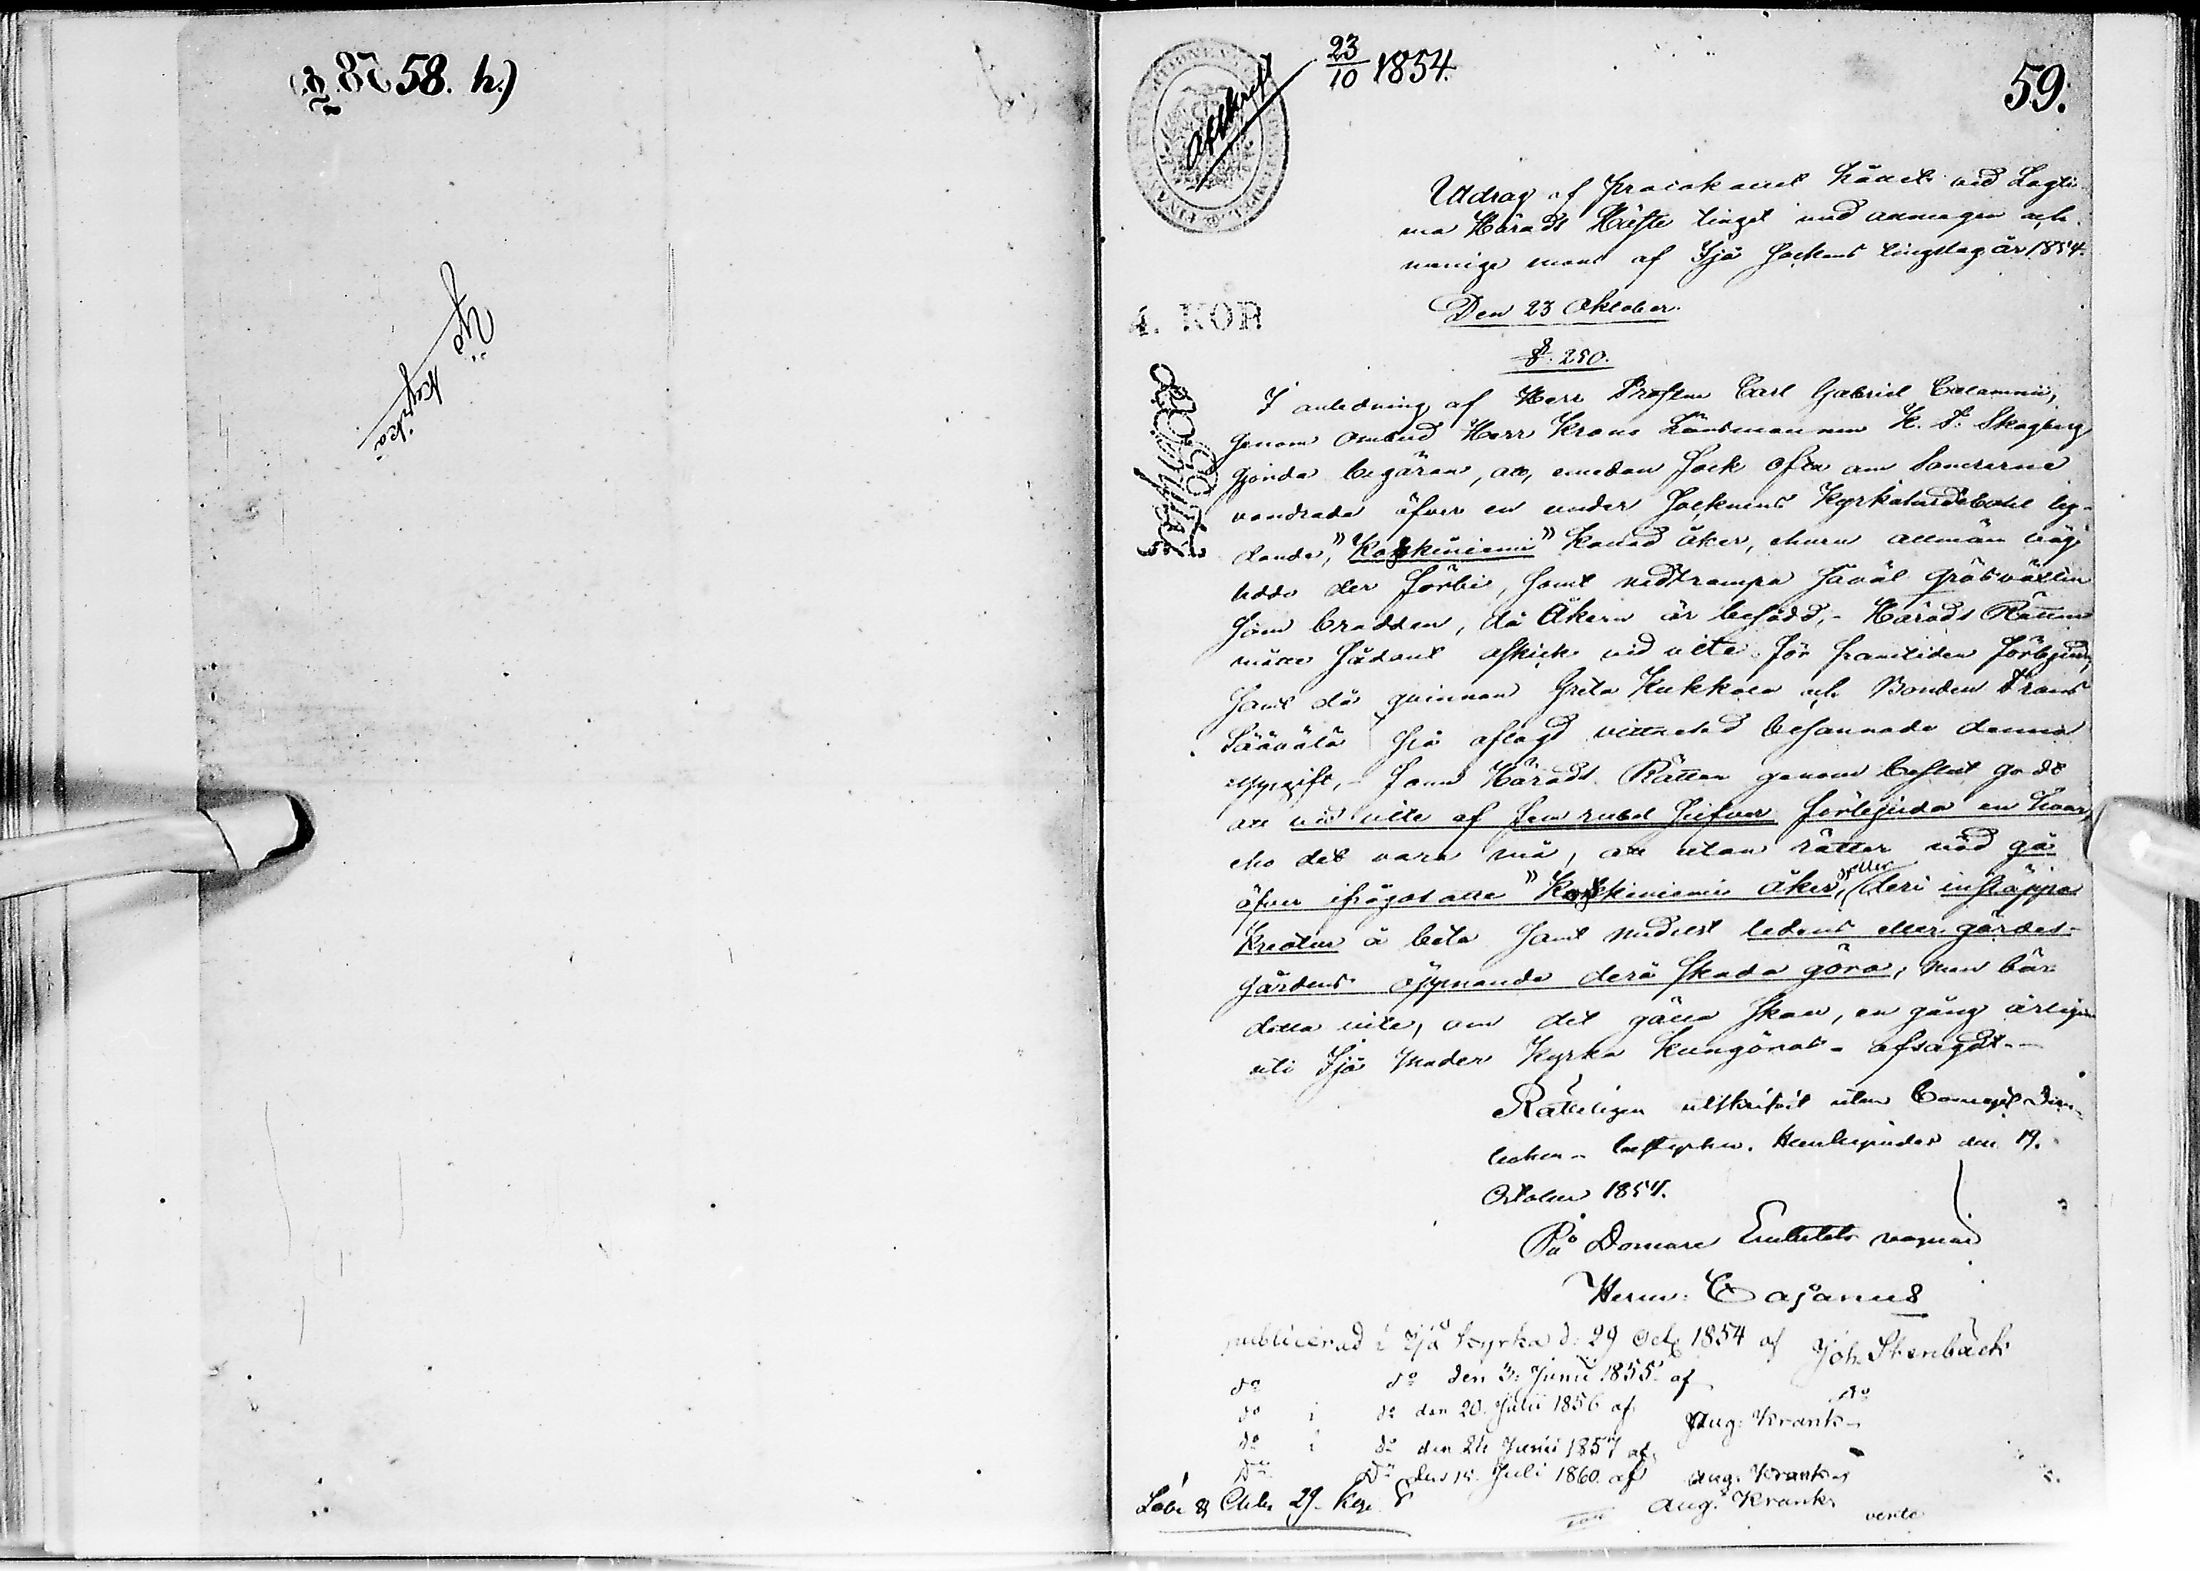 58. h.)
Ijo
kyrka
23/10 1854.
59.
Afskrift
Utdrag af Protokollet hållet vid Lagti-
ma Härads Höste tinget med allmogen och
menige man af Ijo Sockens tingslag år 1854.
Den 23 Oktober.
4. KOP
§. 250.
I anledning af Herr Prosten Carl Gabriel Calamnii,
genom ombud Herr Krono Länsmannen K. F. Skogberg
gjorda begäran, att, emedan folk ofta om Somrarne
vandrade öfver en under Socknens Kyrkoherdeboställ ly-
dande, "Koskiniemi" kallad åker, ehuru allmän väg
ledde der förbi, samt nedtrampa såväl gräsväxten
som brodden, då Åkern är besådd, - Härads Rätten
måtte sådant ofskick vid vite för framtiden förbjuda,
samt då qvinnan Greta Kukkola och Bonden Frans
Säävälä på aflagd vittnesed besannade denna
uppgift, - fann Härads Rätten genom beslut godt
att vid vite af fem rubel silfver förbjuda en hvar,
eho det vara må, att utan rätter nöd gå
öfver ifrågastälte "Koskiniemi åker", eller deri insläppa
kreatur å bete samt medelst ledens eller gärdes-
gårdens öppnande derå skada göra; men bör
detta vite, om det gälla skall, en gång årligen
uti Ijo Moder Kyrka kungöras - afsagdt. -
Rätteligen utskrifvit utan Concept
October 1854.
På Domare Embetets vägnar
Herm: Cajanus
publicerad i Ijo kyrka d: 29 Oct 1854 af Joh. Stenbäck
do do den 3: Junii 1855 af do
do i do den 20. Julii 1856 af Aug: Krank
do i do den 21 Junii 1857 af Aug. Krank
Do Do den 15. Juli 1860. af Aug. Krank
29. Kop. S
verte